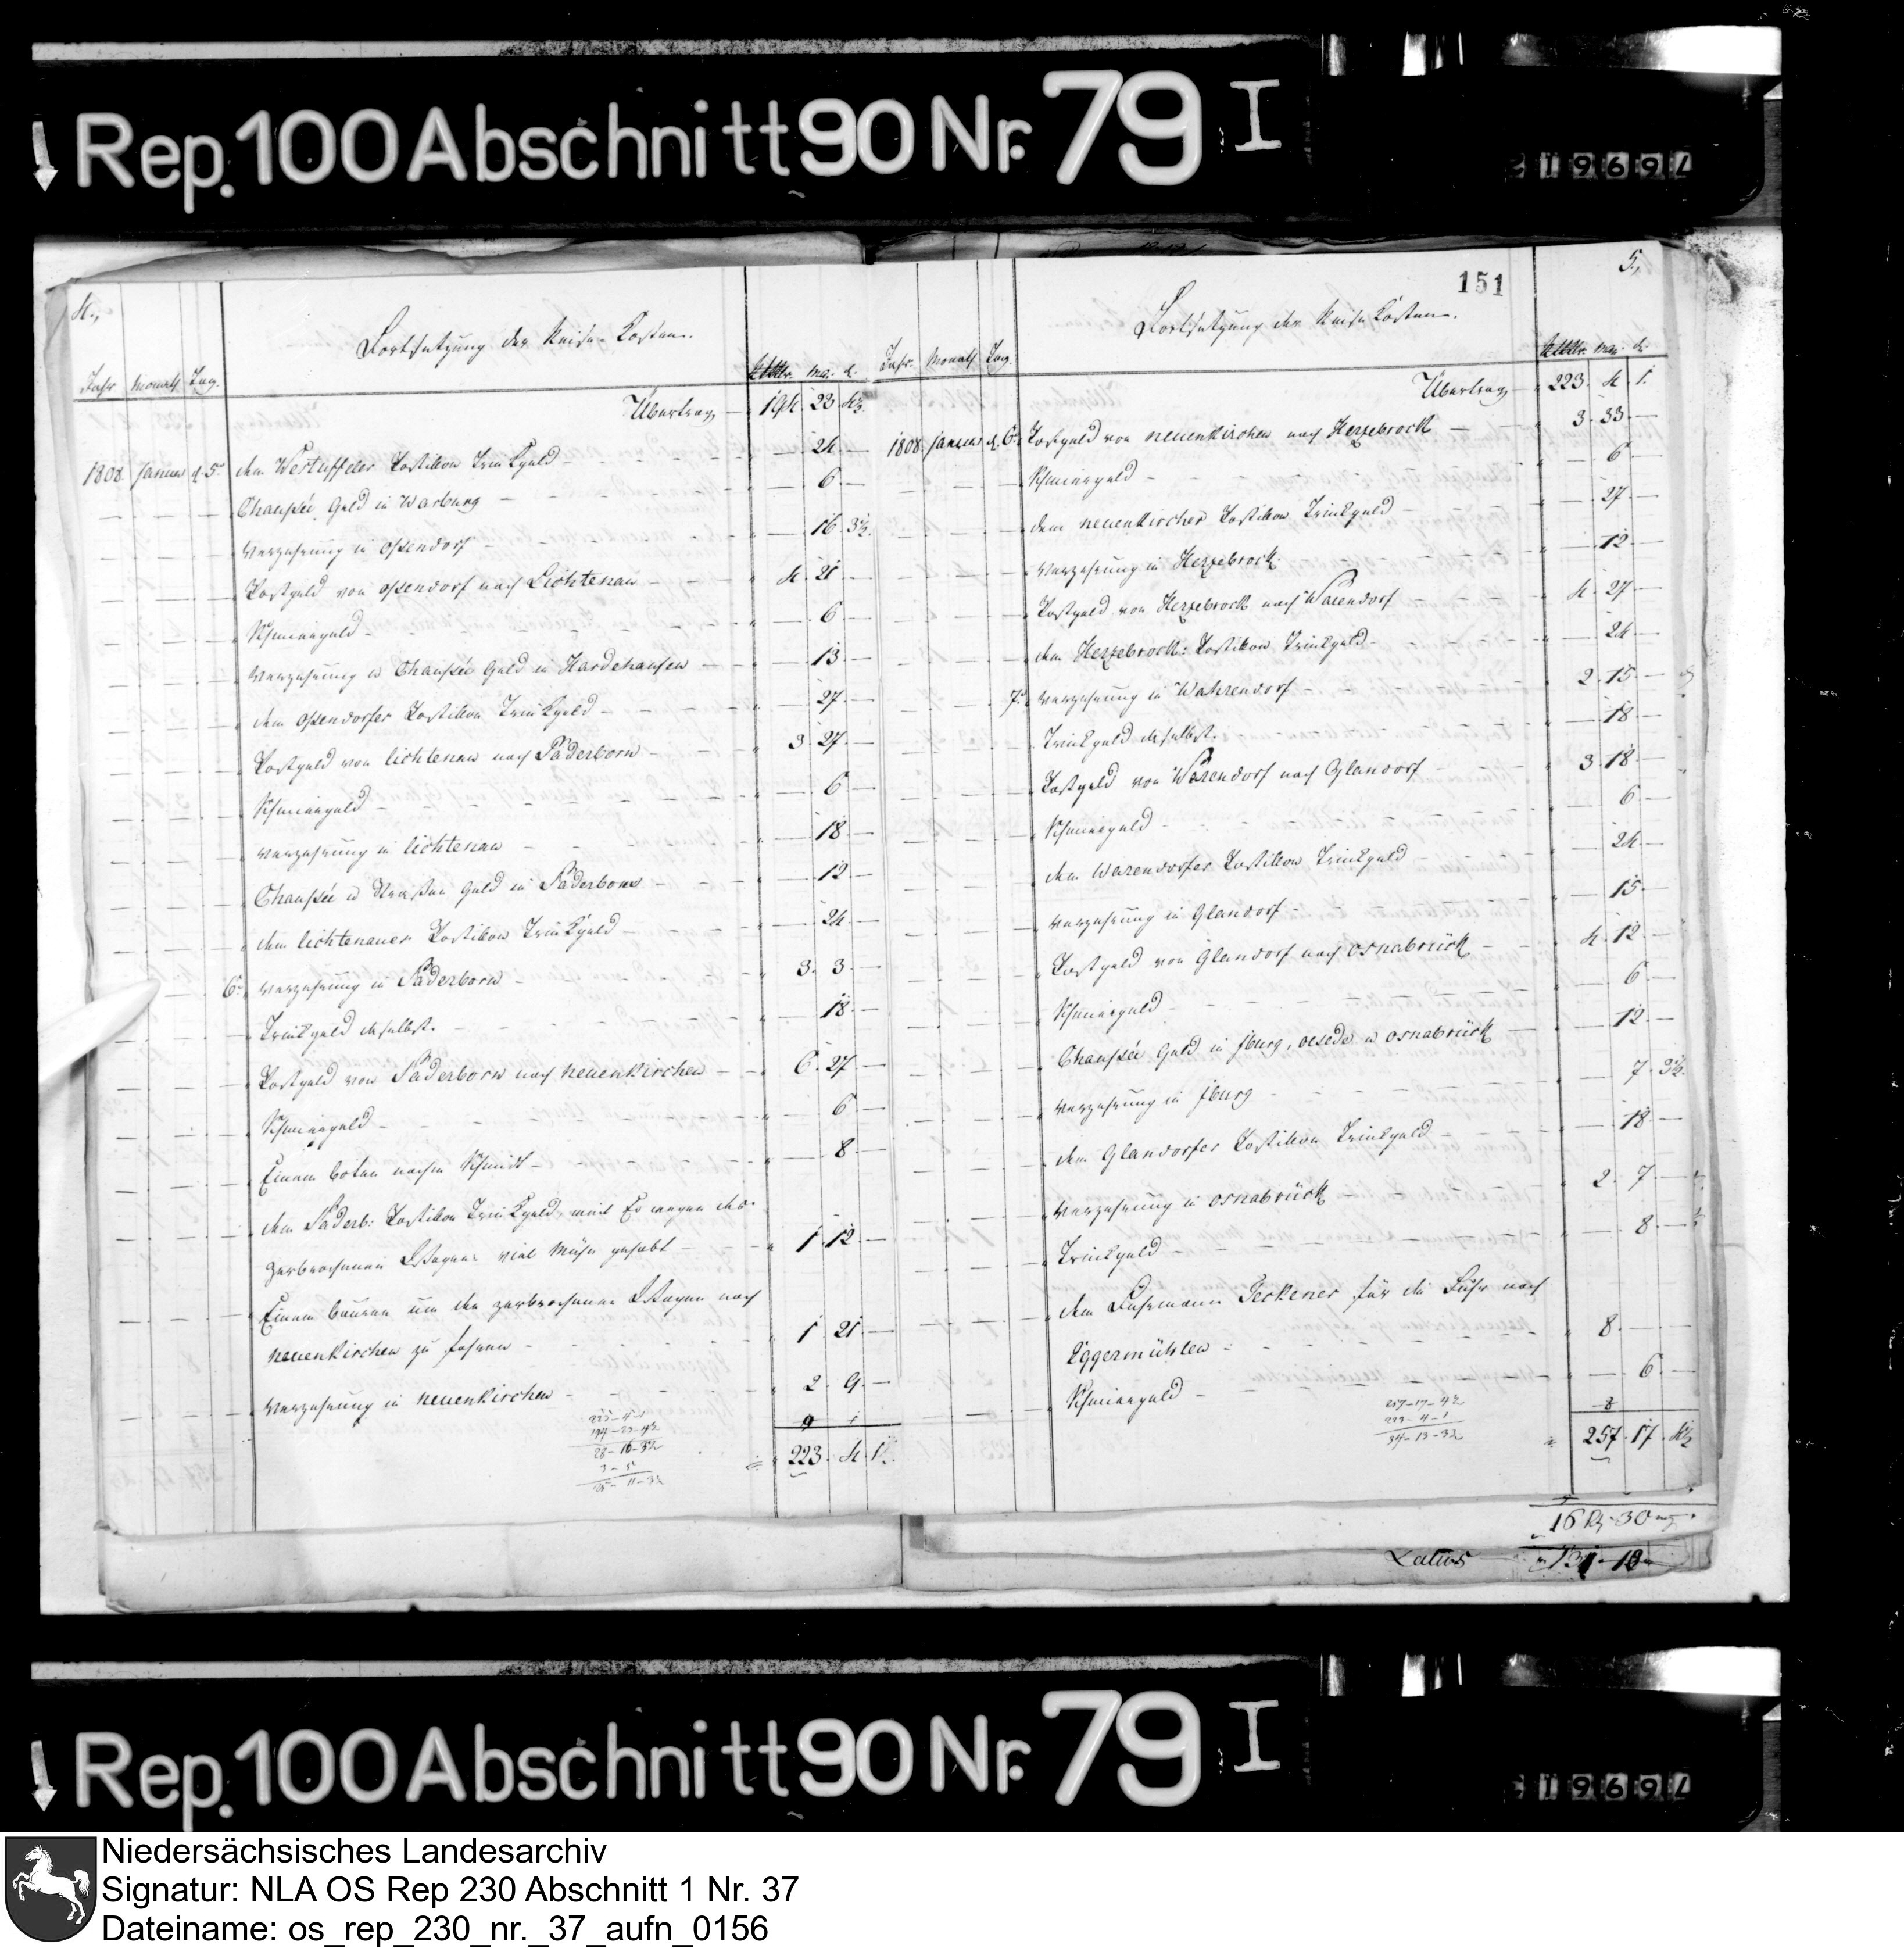 Rep. 100 Abschnitt 90 Nr. 79 I
4.,
Fortsetzung der Reise-Kosten.
Jahr Monath Tag. Rthlr. mg: d.
Übertrag 194. 23. 4½
1808. Januar d. 5. dem Westuffeler Postillon Trinkgeld — 24. —
Chaussée Geld in Warburg — 6. —
Verzehrung in Ossendorf — 16. 3½.
Postgeld von Ossendorf nach Lichtenau 4. 21. —
Schmiergeld — 6. —
Verzehrung u Chaussée Geld in Hardehausen — 13. —
dem Ossendorfer Postillon Trinkgeld — 27. —
Postgeld von Lichtenau nach Paderborn 3. 27. —
Schmiergeld — 6. —
Verzehrung in Lichtenau — 18. —
Chaussée u Straßen Geld in Paderborn — 12. —
dem Lichtenauer Postillon Trinkgeld — 24. —
6. Verzehrung in Paderborn 3. 3. —
Trinkgeld daselbst. — 18. —
Postgeld von Paderborn nach Neuenkirchen 6. 27. —
Schmiergeld — 6. —
Einem Boten nachm Schmidt — 8. —
dem Paderb: Postillon Trinkgeld, weil Er wegen des
zerbrochenen Wagens viel Mühe gehabt 1. 12. —
Einem Bauren um den zerbrochenen Wagen nach
Neuenkirchen zu fahren 1. 21. —
Verzehrung in Neuenkirchen 2. 9. —
223. 4. 1.
151
5.,
Fortsetzung der Reise Kosten.
Jahr. Monath Tag. Rthlr. mg: d.
Übertrag 223. 4. 1.
1808. Januar d. 6. Postgeld von Neuenkirchen nach Herzebrock 3. 33. —
Schmiergeld — 6. —
dem Neuenkircher Postillon Trinkgeld — 27. —
Verzehrung in Herzebrock — 12. —
Postgeld von Herzebrock nach Warendorf 4. 27. —
dem Herzebrock: Postillon Trinkgeld — 24. —
7. Verzehrung in Wahrendorf 2. 15. —
Trinkgeld daselbst. — 18. —
Postgeld von Warendorf nach Glandorf 3. 18. —
Schmiergeld — 6. —
dem Warendorfer Postillon Trinkgeld — 24. —
Verzehrung in Glandorf — 15. —
Postgeld von Glandorf nach Osnabrück 4. 12. —
Schmiergeld — 6. —
Chaussée Geld in Jburg, Oesede u Osnabrück — 12. —
Verzehrung in Jburg — 7. 3½.
dem Glandorfer Postillon Trinkgeld — 18. —
Verzehrung in Osnabrück 2. 7. —
Trinkgeld — 8. —
dem Fuhrmann Peckener für die Fuhr nach
Eggermühlen 8. — —
Schmiergeld — 6. —
257-17-4½
223-4-1
34-13-3½
257. 17. 4½
16 Rth 30 mg
Latus
Rep. 100 Abschnitt 90 Nr. 79 I
Niedersächsisches Landesarchiv
Signatur: NLA OS Rep 230 Abschnitt 1 Nr. 37
Dateiname: os_rep_230_nr._37_aufn_0156